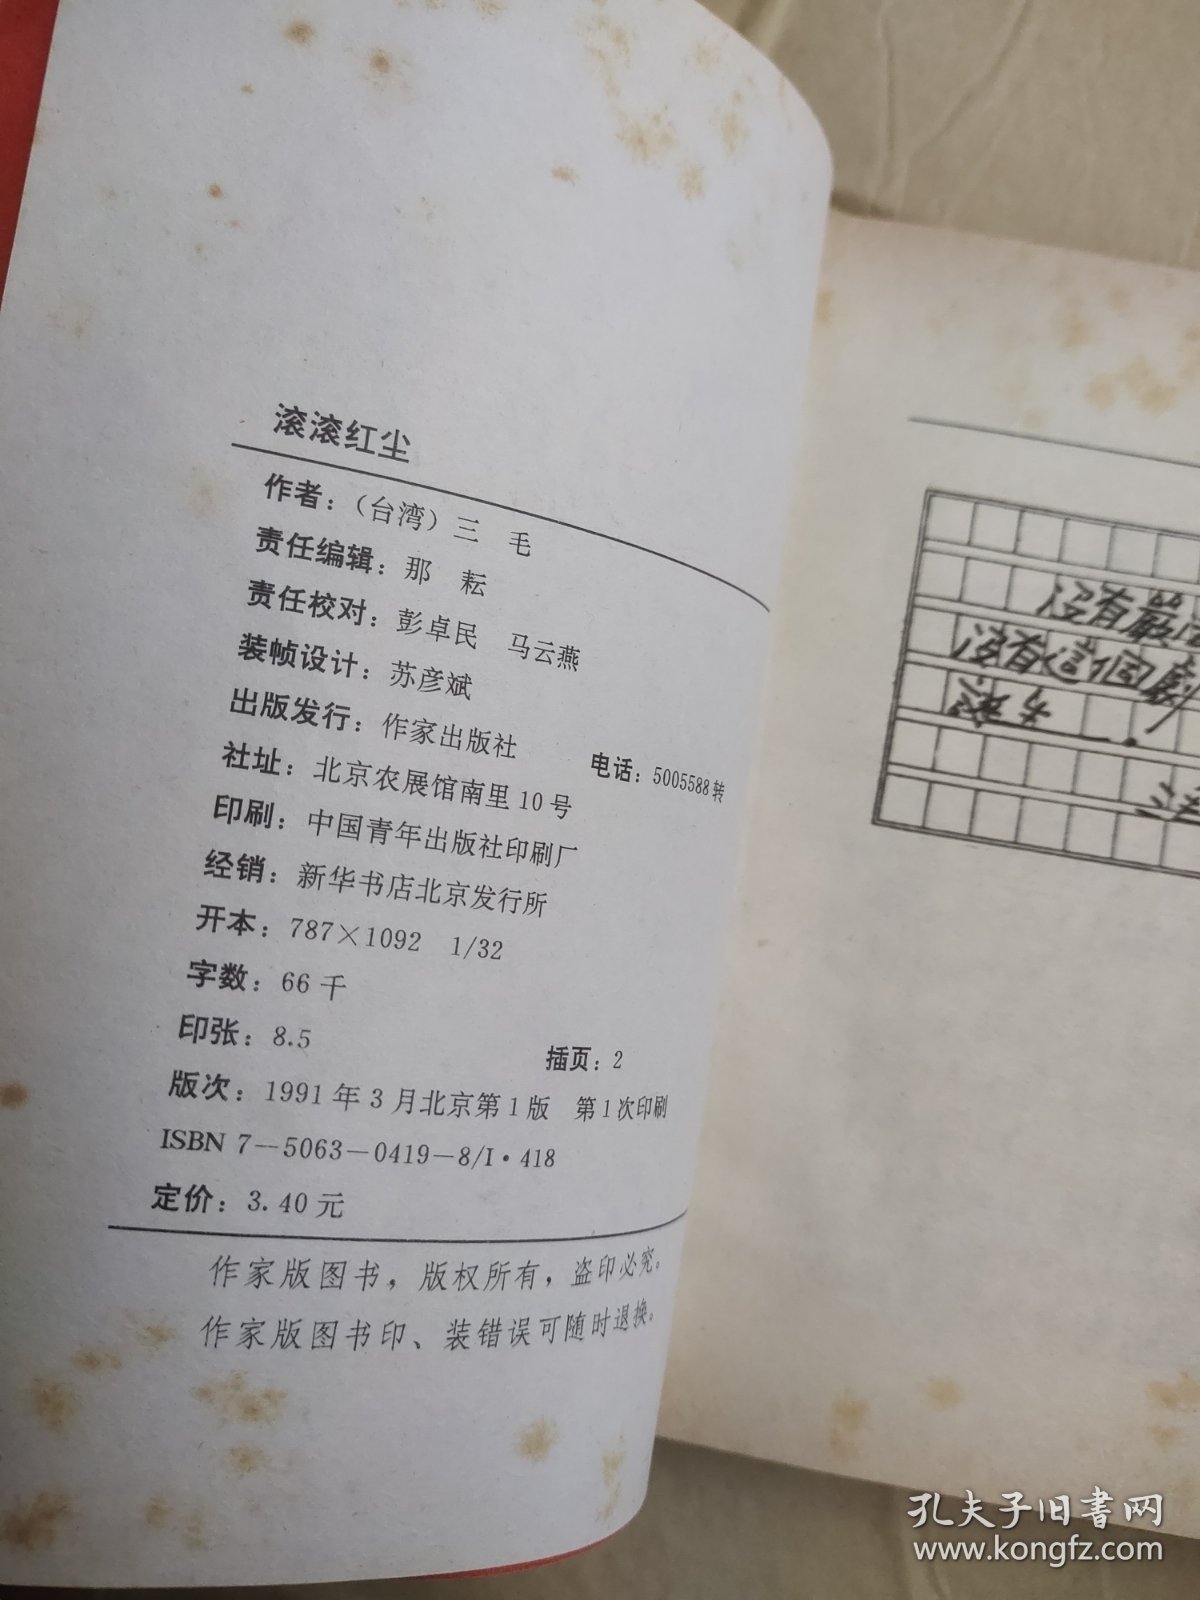 滚滚红尘
作者：（台湾）三 毛
责任编辑：那 耘
责任校对：彭卓民 马云燕
装帧设计：苏彦斌
出版发行：作家出版社
社址：北京农展馆南里10号 电话：5005588转
印刷：中国青年出版社印刷厂
经销：新华书店北京发行所
开本：787×1092 1/32
字数：66千
印张：8.5 插页：2
版次：1991年3月北京第1版 第1次印刷
ISBN 7-5063-0419-8/I·418
定价：3.40元
作家版图书，版权所有，盗印必究。
作家版图书印、装错误可随时退换。
没有嚴
没有這個劇
孔夫子旧书网
www.kongfz.com